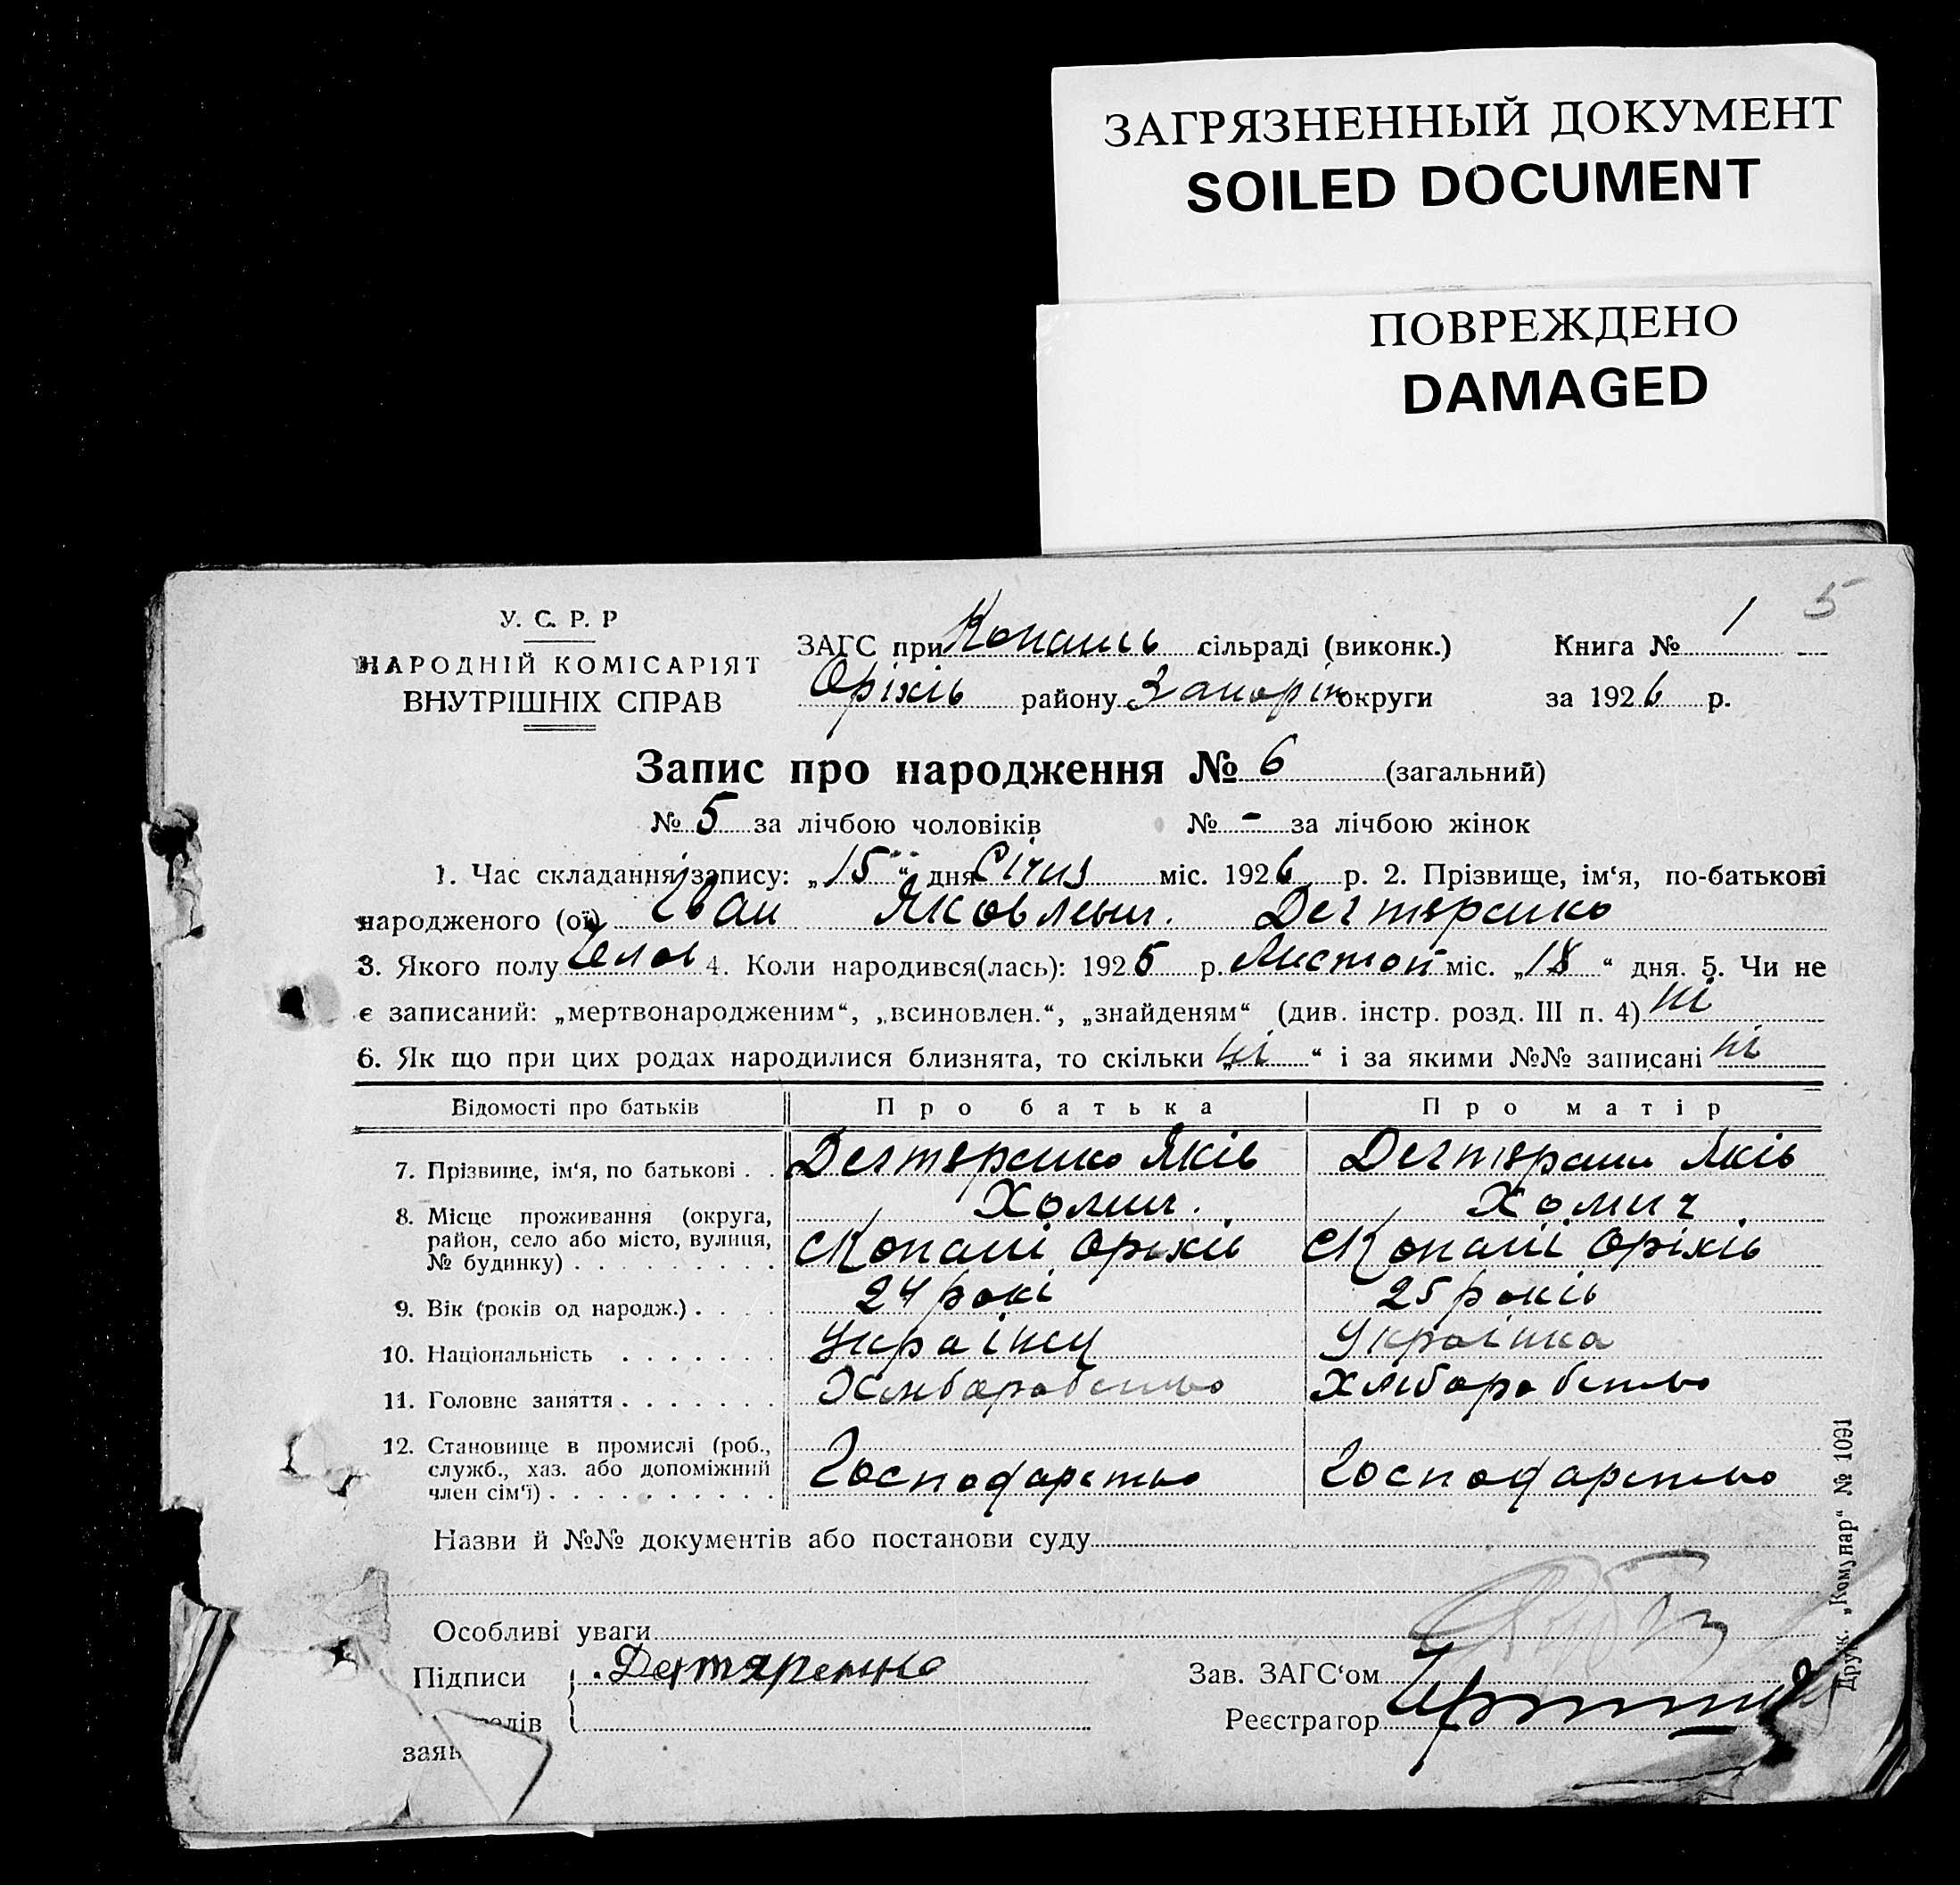 ЗАГРЯЗНЕННЫЙ ДОКУМЕНТ
SOILED DOCUMENT
ПОВРЕЖДЕНО
DAMAGED
5
У. С. Р. Р
НАРОДНІЙ КОМІСАРІЯТ
ВНУТРІШНІХ СПРАВ
ЗАГС при Копань сільраді (виконк.) Книга № 1
Оріхів району Запоріж округи за 1926 р.
Запис про народження № 6 (загальний)
№ 5 за лічбою чоловіків № - за лічбою жінок
1. Час складання запису: „15“ дня Січня міс. 1926 р. 2. Прізвище, ім‘я, по-батькові
народженого (ої) Іван Яковлевич. Дегтяренко
3. Якого полу Челов 4. Коли народився(лась): 1925 р. Листоп міс. „18“ дня. 5. Чи не
є записаний: „мертвонародженим“, „всиновлен.“, „знайденям“ (див. інстр. розд. III п. 4) ні
6. Як що при цих родах народилися близнята, то скільки „ні“ і за якими №№ записані ні
Відомості про батьків Про батька Про матір
7. Прізвище, ім‘я, по батькові . . Дегтяренко Яків Дегтярен Яків
Хомич. Хомич
8. Місце проживання (округа,
район, село або місто, вулиця,
№ будинку) . . . . . . . . . с Копані Оріхів с Копані Оріхів
9. Вік (років од народж.) . . . . 24 рокі 25 років
10. Національність . . . . . . . Українц Українка
11. Головне заняття . . . . . . . Хліборобство Хліборобство
12. Становище в промислі (роб.,
служб., хаз. або допоміжний
член сім‘ї) . . . . . . . . . . Господарство Господарство
Назви й №№ документів або постанови суду
Особливі уваги
Підписи Дегтяренко Зав. ЗАГС‘ом
Реєстратор
заяв
Друк. „Комунар“ № 1091